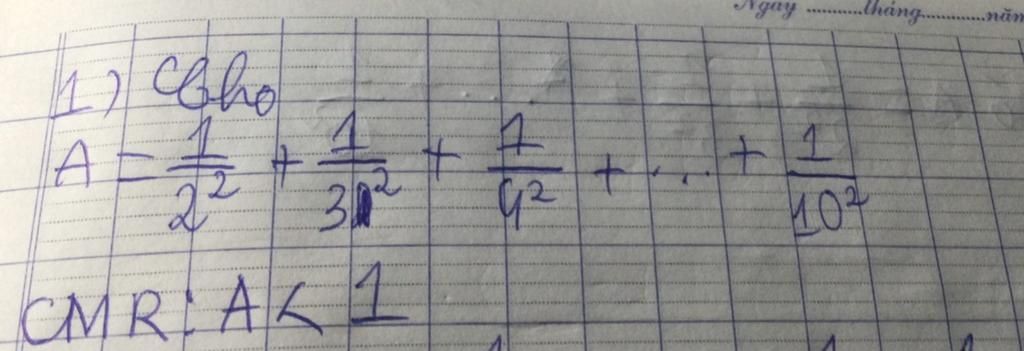 Ngày ..........tháng............năm
1) Cho
A = 1/2² + 1/3² + 1/4² + ... + 1/10²
CMR: A < 1